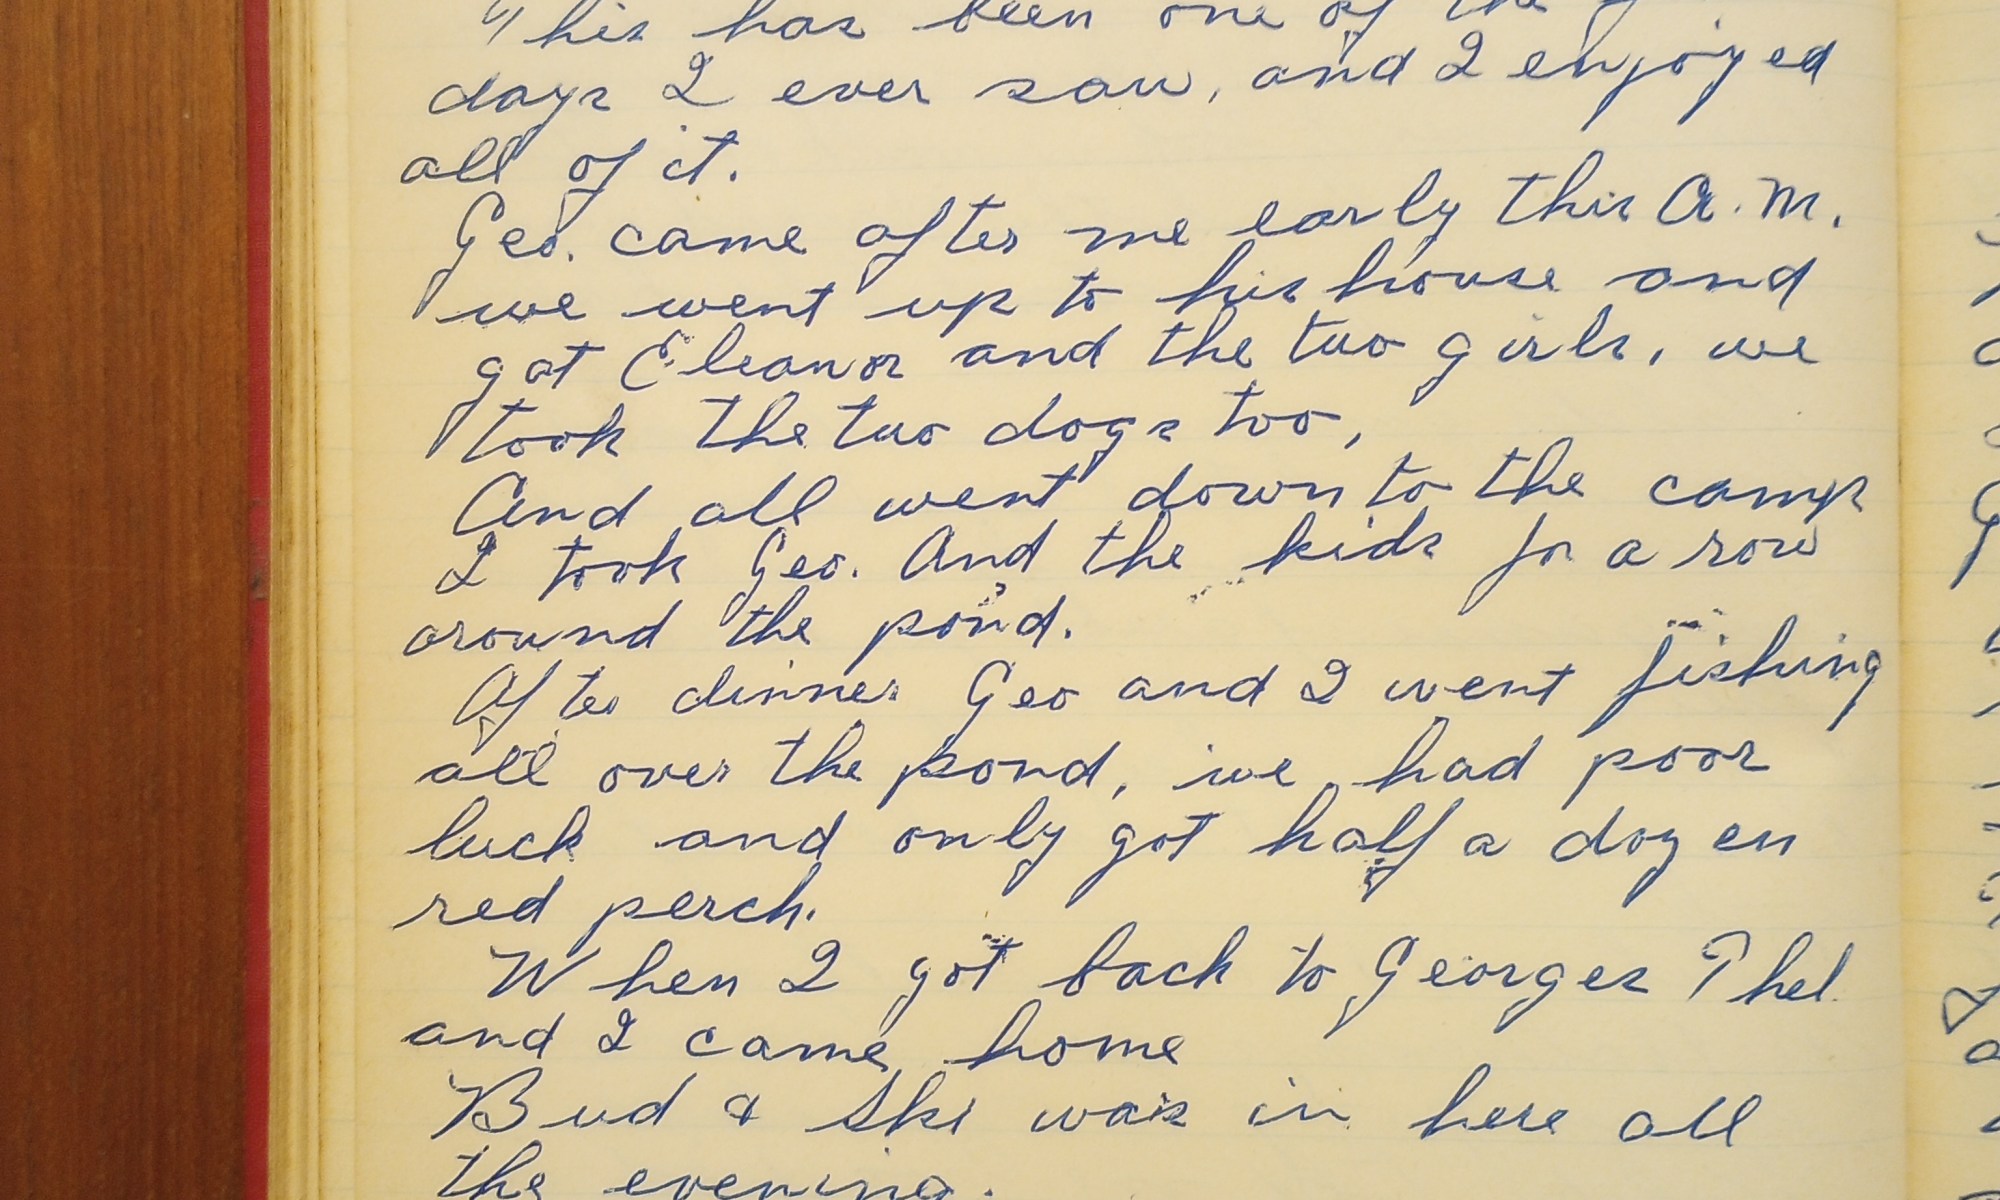 This has been one of the
days I ever saw, and I enjoyed
all of it.
Geo. came after me early this A.M.
we went up to his house and
got Eleanor and the two girls, we
took the two dogs too,
And all went down to the camp
I took Geo. And the kids for a row
around the pond.
After dinner Geo and I went fishing
all over the pond, we had poor
luck and only got half a dozen
red perch.
When I got back to Georges Thel
and I came home
Bud & Ski was in here all
the evening.